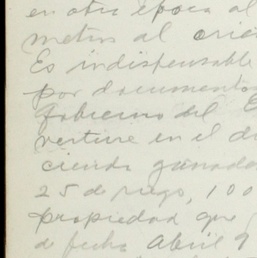 en otra época al
metros al orie
Es indispensable
por documentos
Gobierno del E
vertirse en el d
ciendo ganado
25 de riego, 100
propiedad que
de fecha Abril 9